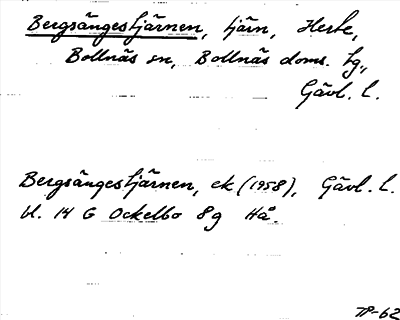 Bergsängestjärnen, tjärn, Herte,
Bollnäs sn, Bollnäs doms. tg.,
Gävl. l.
Bergsängestjärnen, ek (1958), Gävl. l.
bl. 14 G Ockelbo 8g Hå.
TP-62